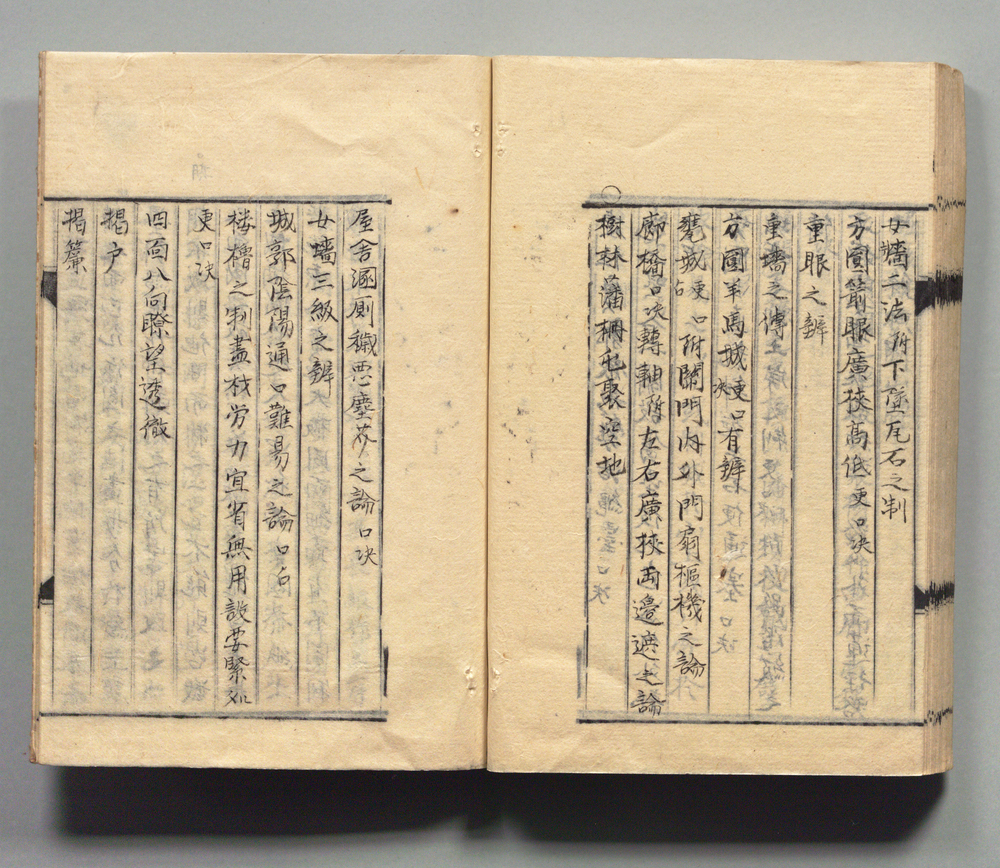 女墻二法附下墜瓦石之制
方圓箭眼廣狹高低更口决
重眼之辨
重墻之傳
方圓羊馬城更口决有辨
甕城更口附關門内外門扇樞機之論
廊橋口决轉軸所左右廣狹兩邉遮之論
樹林藩柵屯聚空地
屋舎溷厠穢惡塵芥之論口决
女墻三級之辨
城郭陰陽通口難易之論口
楼櫓之制盡材労力宜省無用設要緊処
更口决
四面八向瞭望透徹
揭户
揭簾